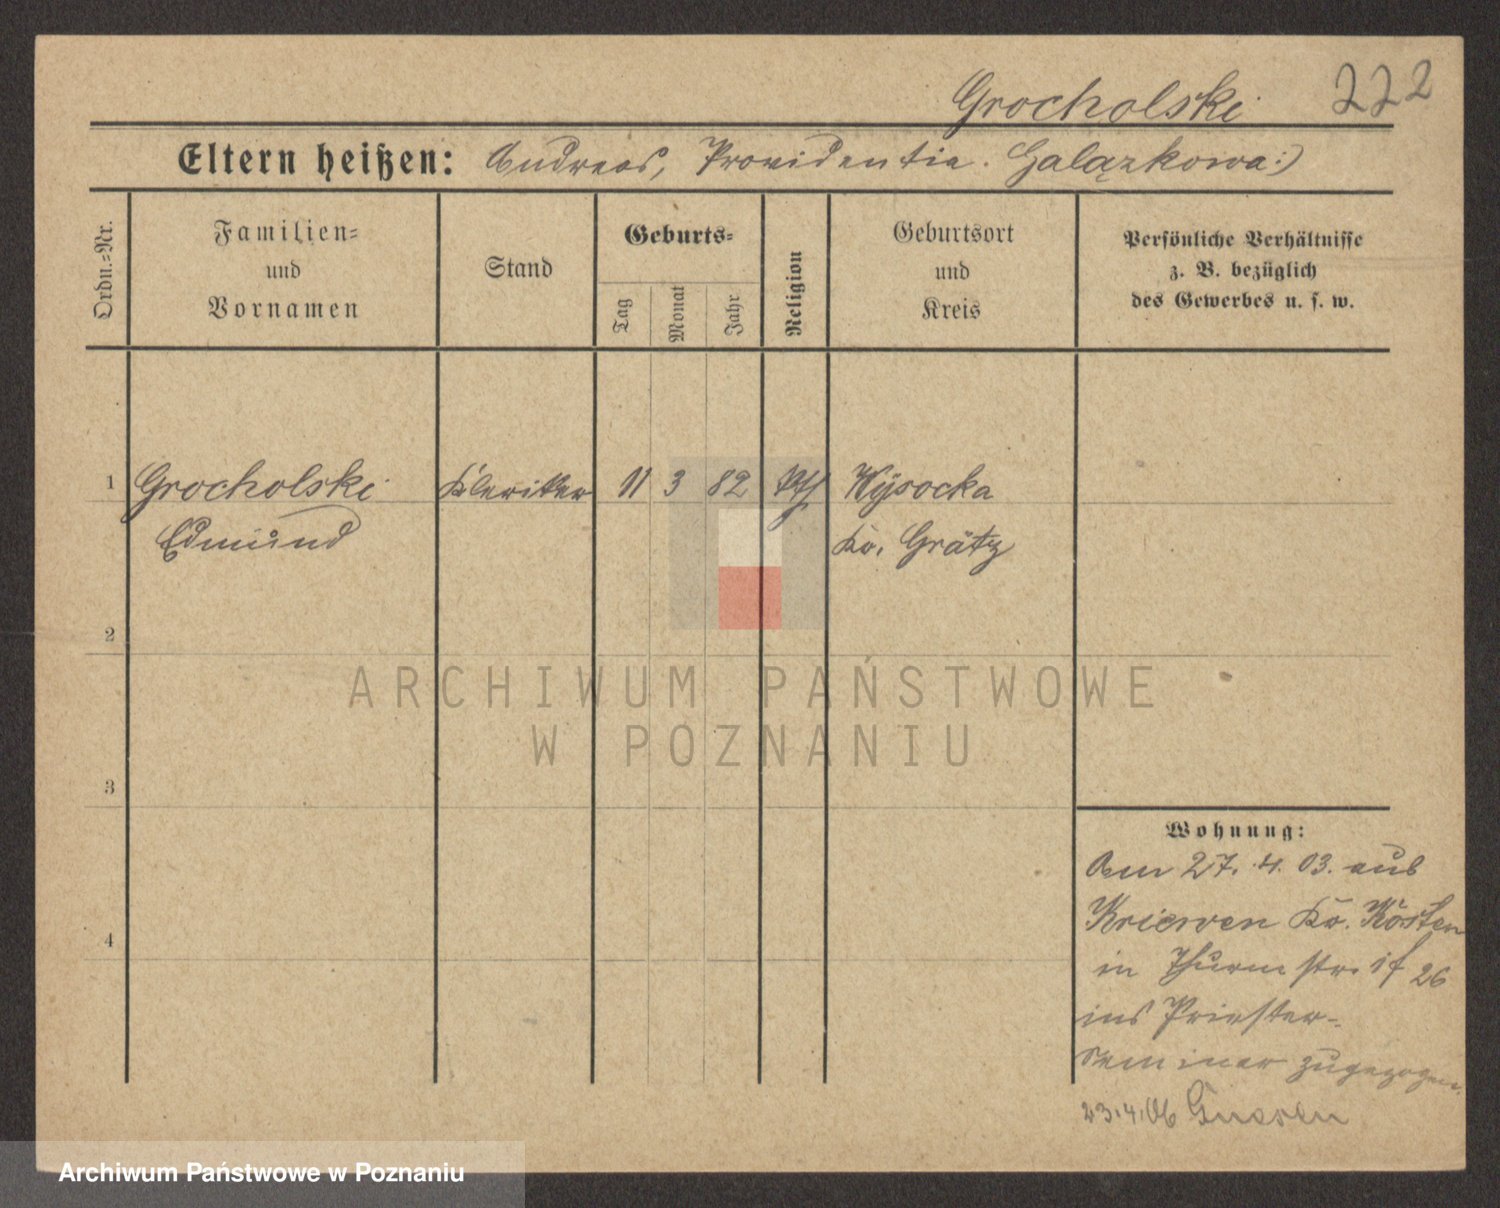 Grocholski 222
Eltern heißen: Andreas, Providentia. Galązkowa:)
Ordn.=Nr.
Familien=
und
Vornamen
Stand
Geburts=
Tag
Monat
Jahr
Religion
Geburtsort
und
Kreis
Persönliche Verhältnisse
z. B. bezüglich
des Gewerbes u. s. w.
1 Grocholski Kleriker 11 3 82 kth Wysocka
Edmund Kr. Grätz
2
3
4
ARCHIWUM PAŃSTWOWE
W POZNANIU
Wohnung:
Am 27. 4. 03. aus
Kriewen Kr. Kosten
in Thurmstr. 26
ins Priester-
seminar zugezogen
23.4.06 Gnesen
Archiwum Państwowe w Poznaniu